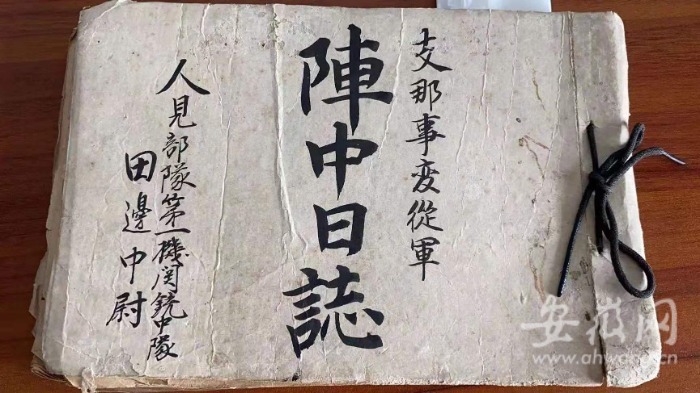 支那事変從軍
陣中日誌
人見部隊第一機関銃中隊
田邊中尉
安徽网
www.ahwang.cn